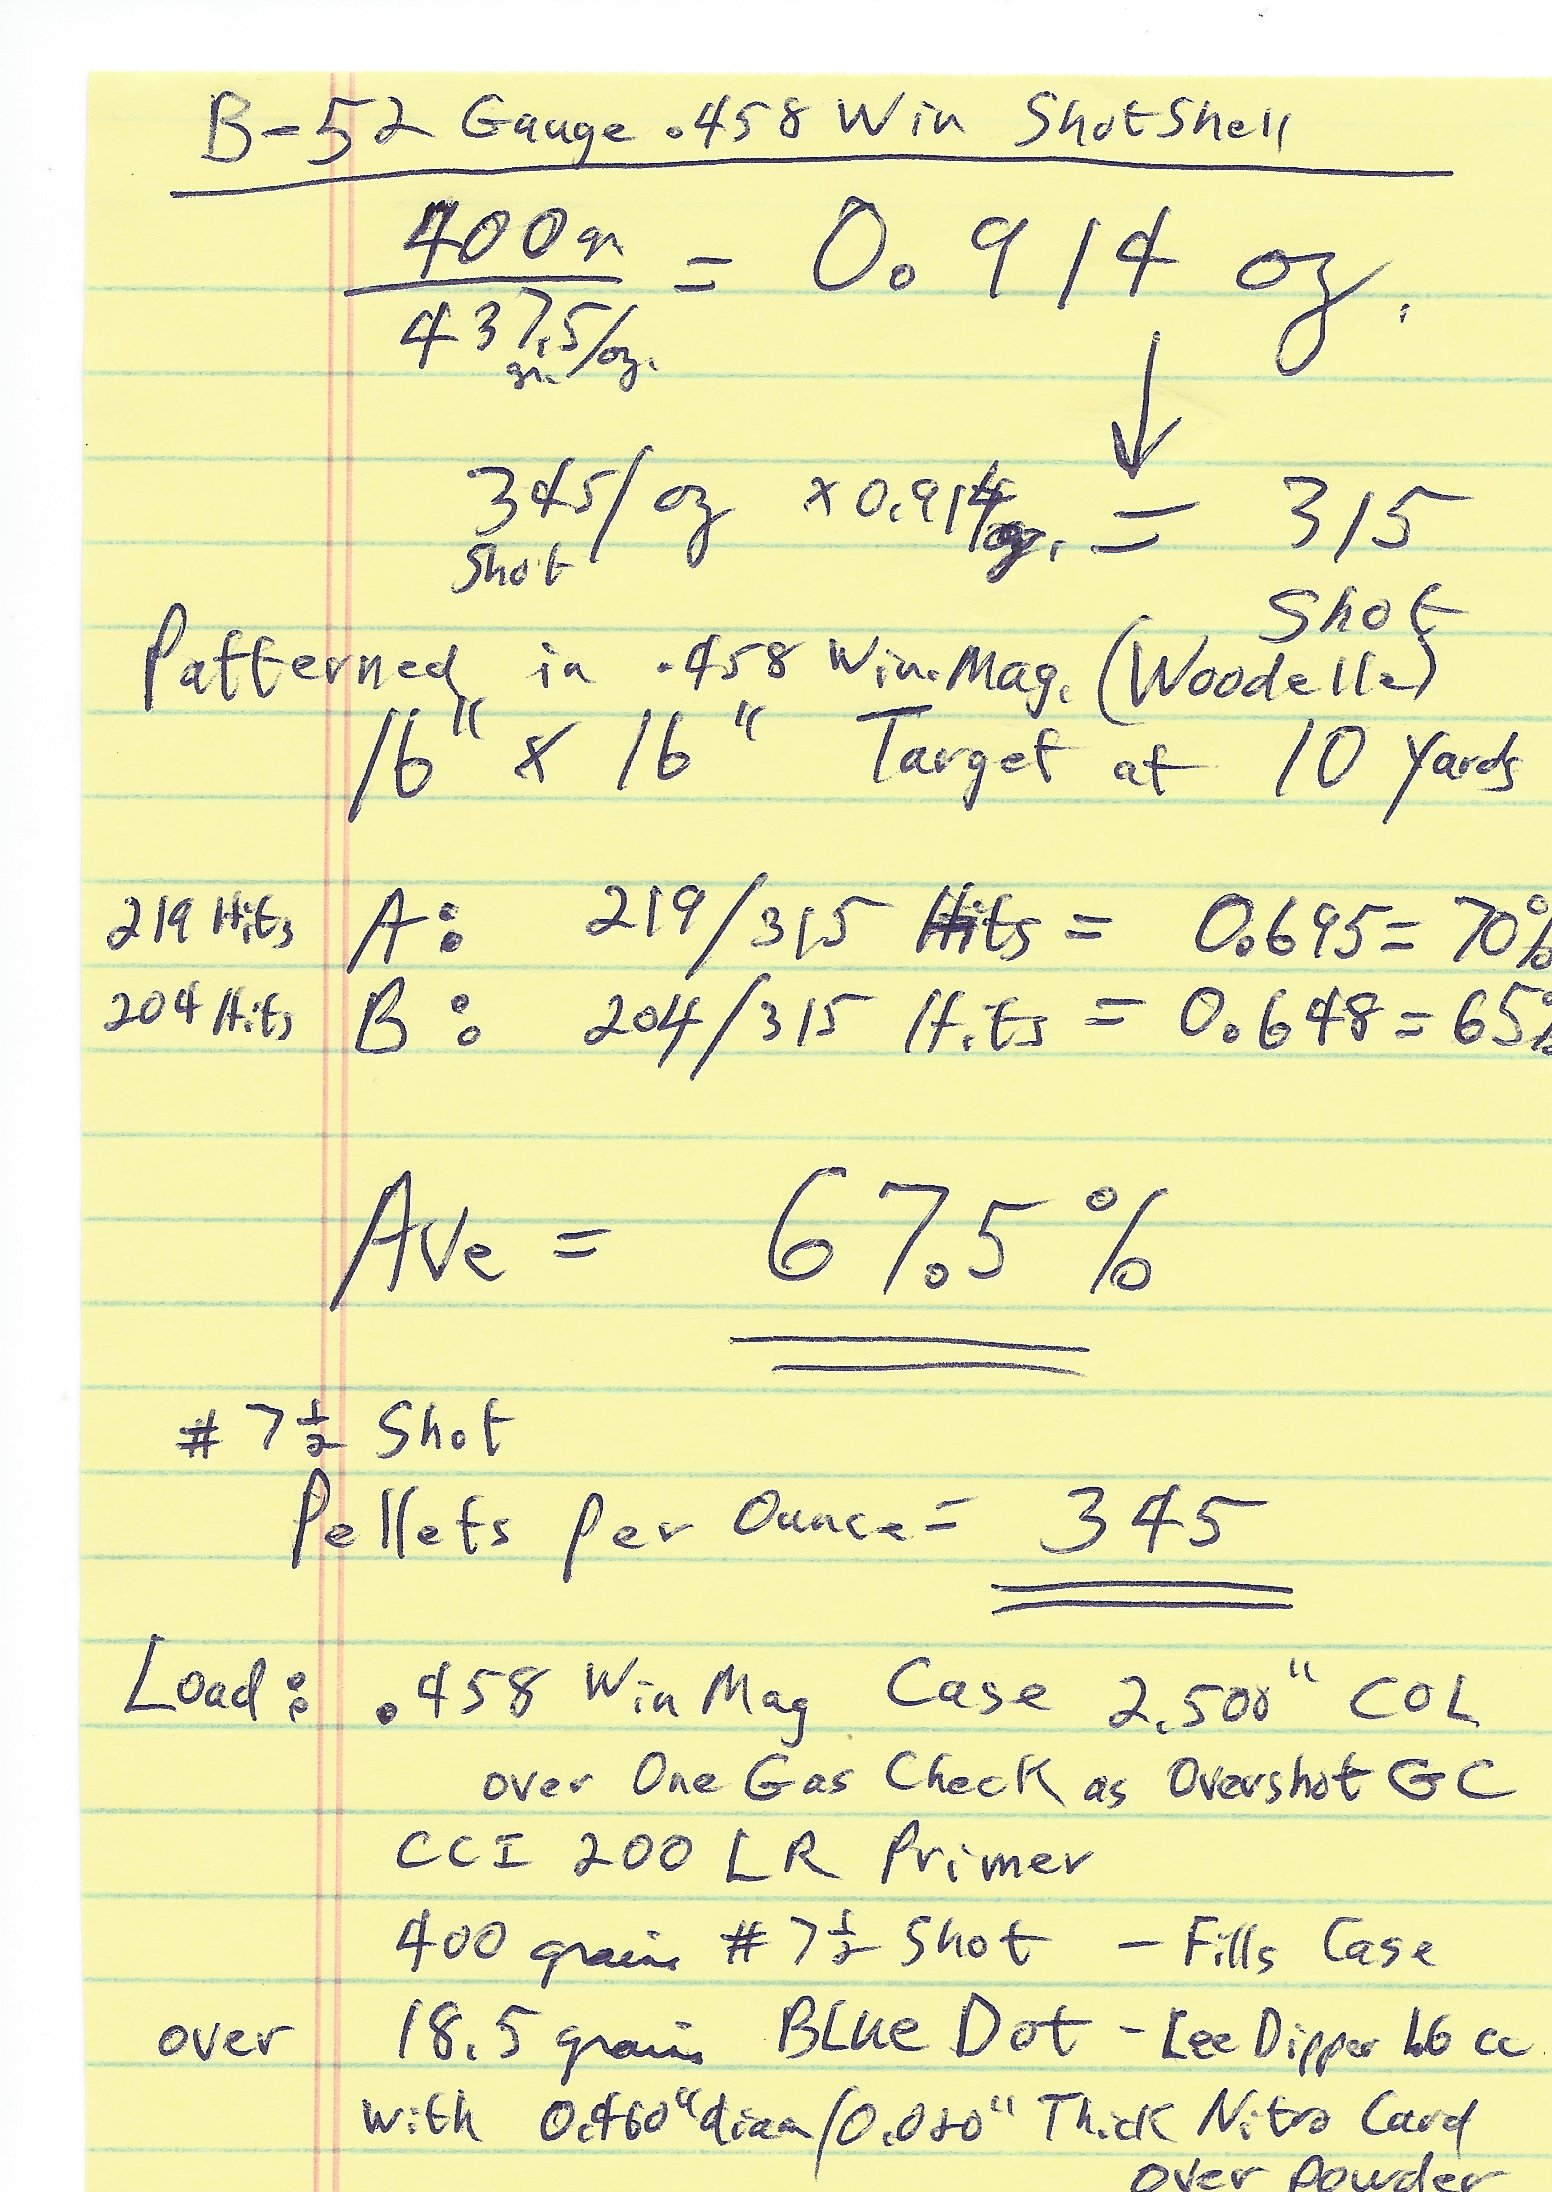 B-52 Gauge .458 Win ShotShell
400 gr / 437.5 gr./oz. = 0.914 oz.
345/oz x 0.914 oz. = 315
Shot Shot
Patterned in .458 Win.Mag. (Woodelle)
16" x 16" Target at 10 Yards
219 Hits A: 219/315 Hits = 0.695 = 70%
204 Hits B: 204/315 Hits = 0.648 = 65%
Ave = 67.5%
# 7 1/2 Shot
Pellets Per Ounce = 345
Load: .458 Win Mag Case 2.500" COL
over One Gas Check as Overshot GC
CCI 200 LR Primer
400 grains # 7 1/2 Shot - Fills Case
over 18.5 grains BLue Dot - Lee Dipper 1.6 cc
with 0.460" diam/ Thick Nitro Card
over powder